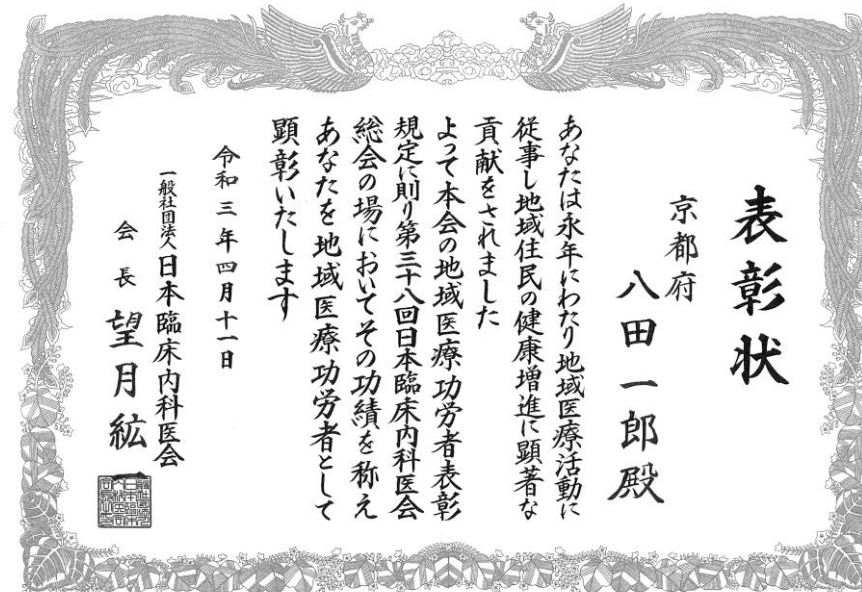 表彰状
京都府
八田一郎殿
あなたは永年にわたり地域医療活動に
従事し地域住民の健康増進に顕著な
貢献をされました
よって本会の地域医療功労者表彰
規定に則り第三十八回日本臨床内科医会
総会の場においてその功績を称え
あなたを地域医療功労者として
顕彰いたします
令和三年四月十一日
一般社団法人日本臨床内科医会
会長 望月紘一